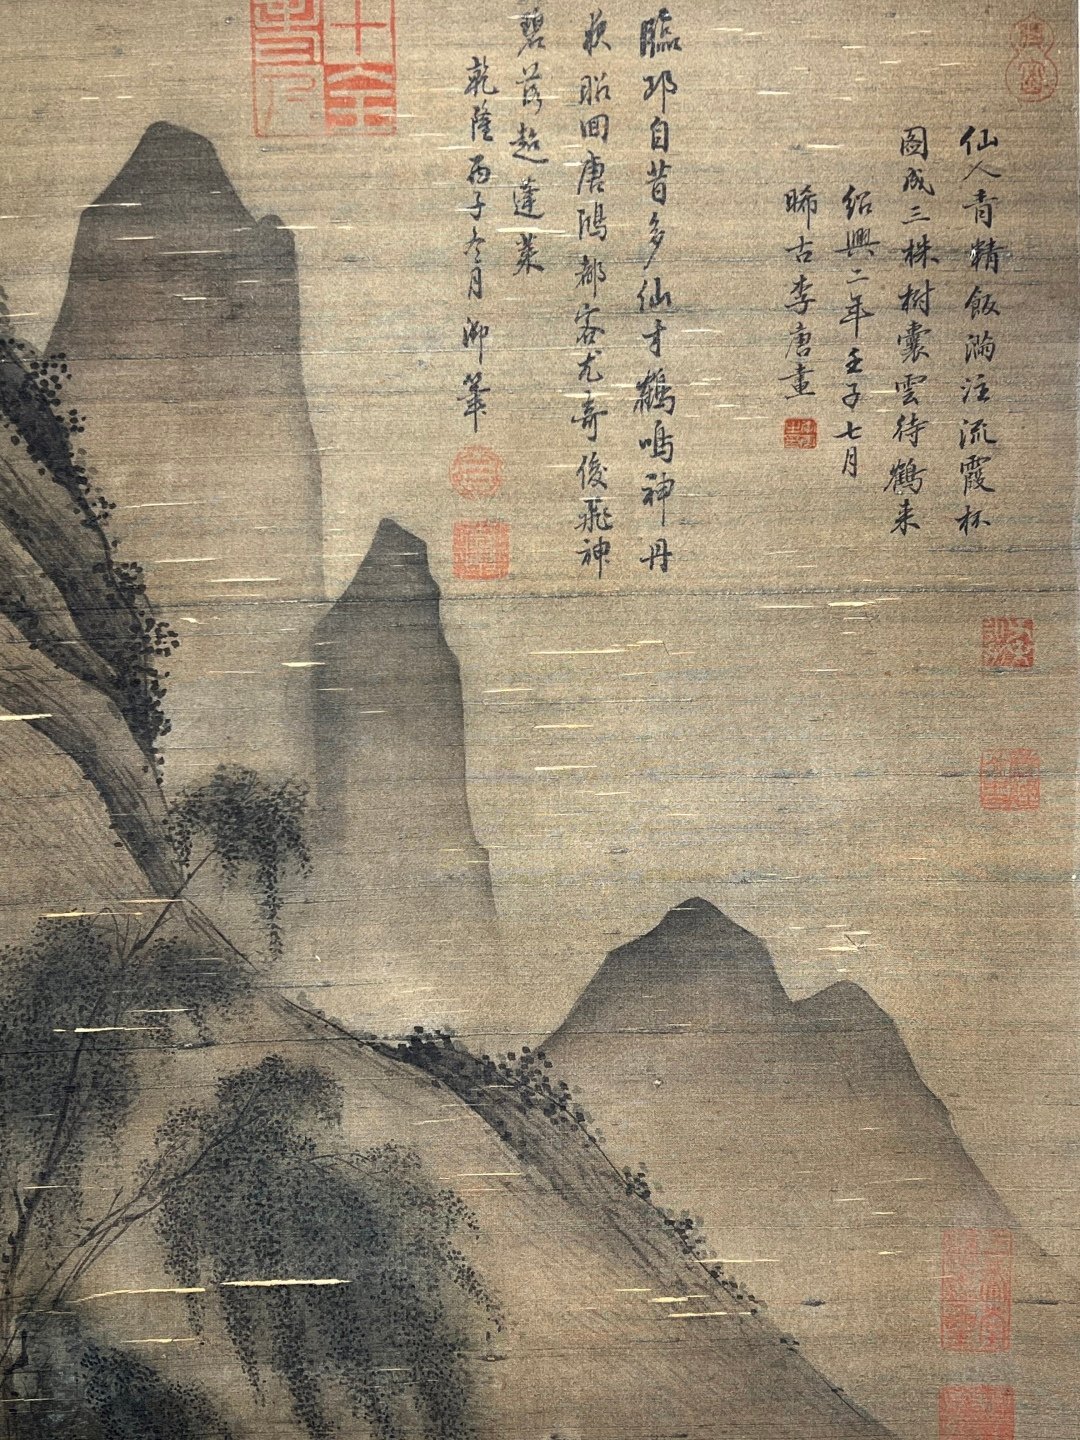 仙人青精飯滿注流霞杯
圖成三株樹囊雲待鶴来
紹興二年壬子七月
晞古李唐畫
臨邛自昔多仙才鶴鳴神丹
昭回唐鴻都客尤奇俊飛神
碧落超蓬萊
乾隆丙子冬月御筆